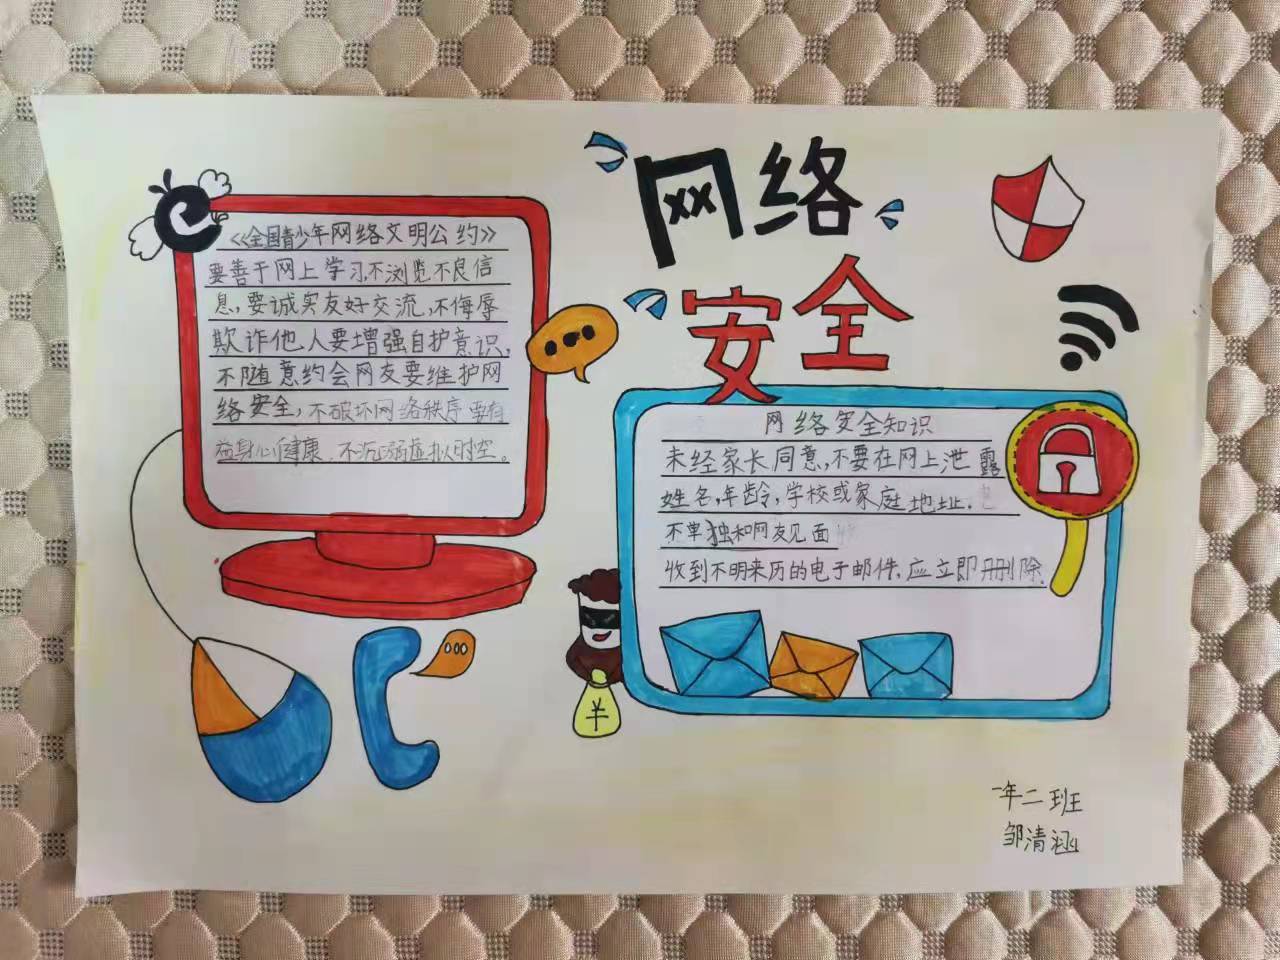 网络
安全
《全国青少年网络文明公约》
要善于网上学习,不浏览不良信
息,要诚实友好交流,不侮辱
欺诈他人要增强自护意识,
不随意约会网友要维护网
络安全,不破坏网络秩序要有
益身心健康.不沉溺虚拟时空。
网络安全知识
未经家长同意,不要在网上泄露
姓名,年龄,学校或家庭地址.
不单独和网友见面
收到不明来历的电子邮件,应立即删除.
一年二班
邹清涵